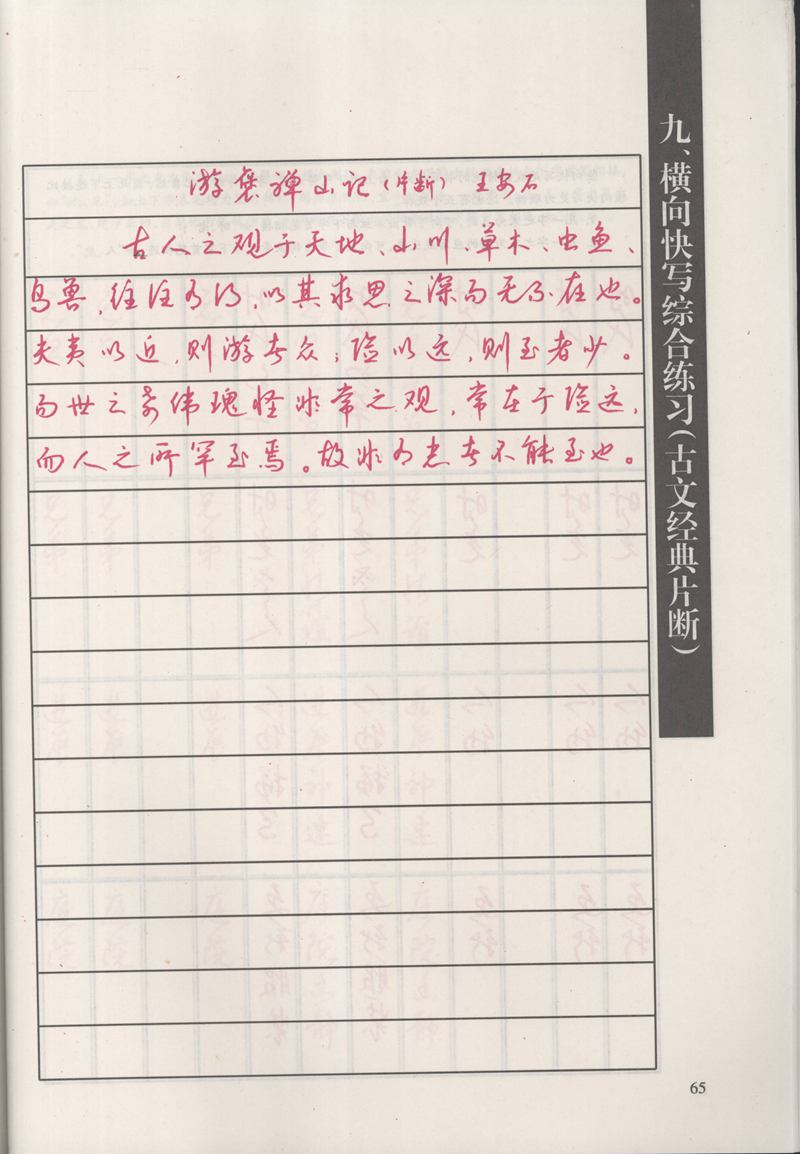 九、横向快写综合练习(古文经典片断)
游褒禅山记(片断) 王安石
古人之观于天地、山川、草木、虫鱼、
鸟兽,往往有得,以其求思之深而无不在也。
夫夷以近,则游者众;险以远,则至者少。
而世之奇伟瑰怪非常之观,常在于险远,
而人之所罕至焉。故非有志者不能至也。
65